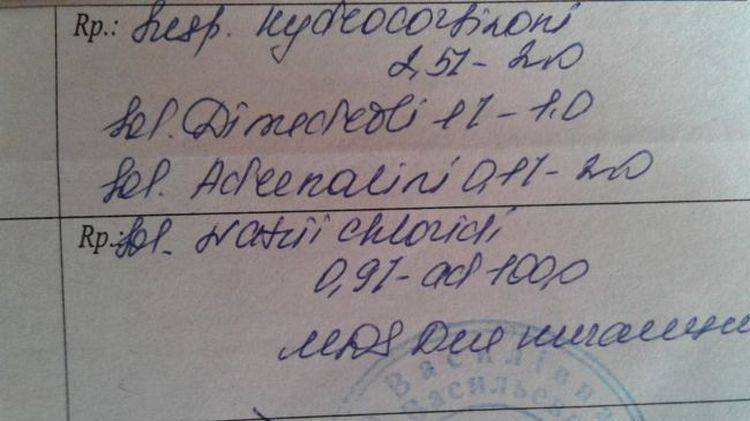 Rp.: Susp. Hydrocortizoni
2,5% - 2.0
Sol. Dimedroli 1% - 1.0
Sol. Adrenalini 0,1% - 2.0
Rp.: Sol. Natrii chloridi
0,9% - ad 100,0
MDS Для
Василівна
Васильев